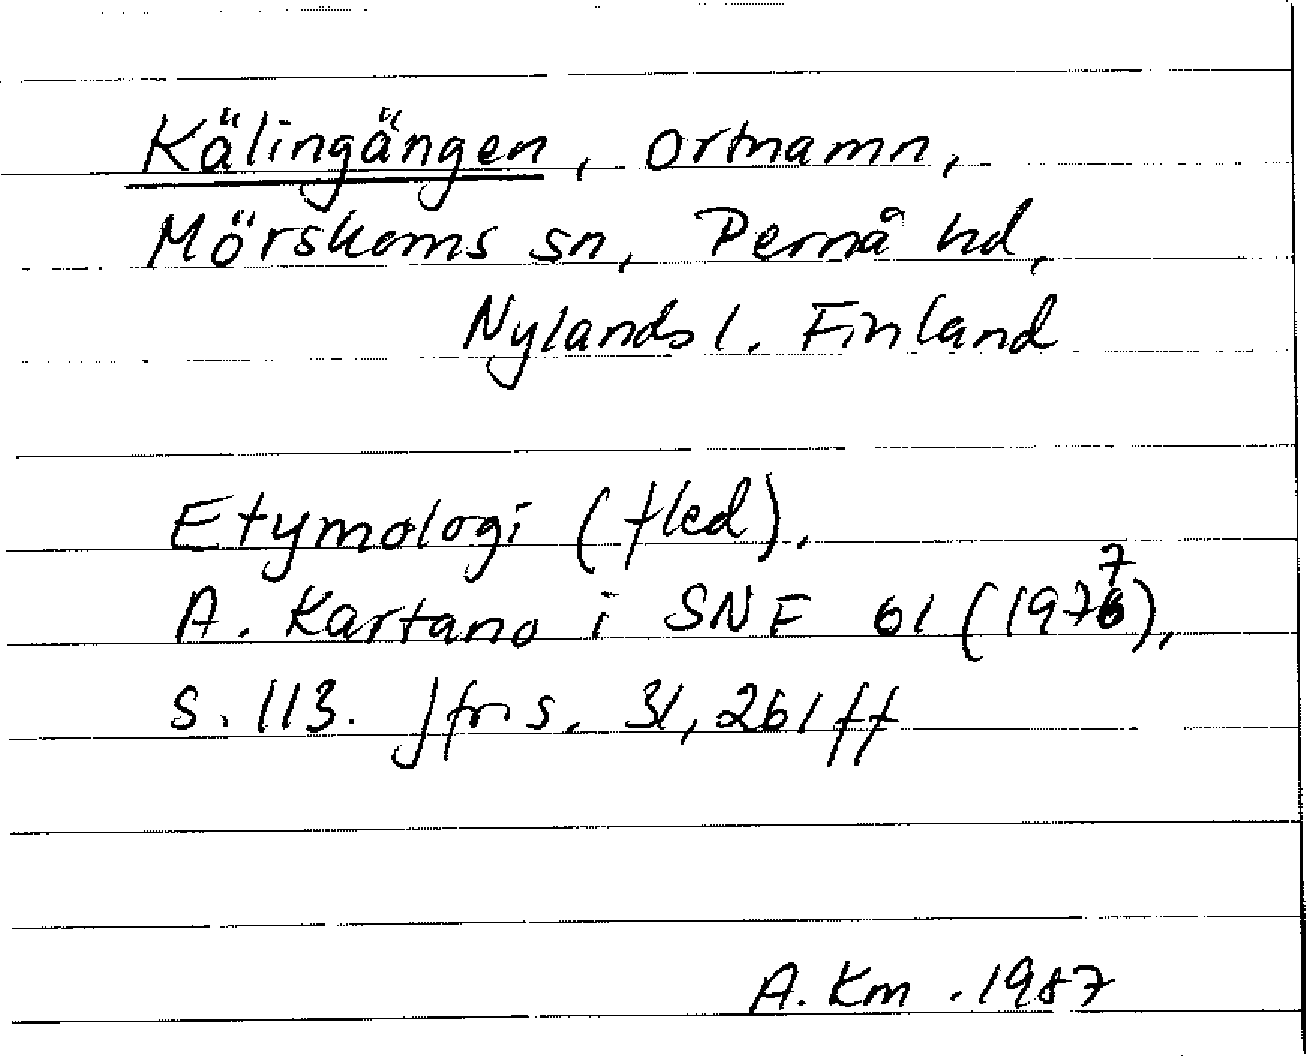 Kälingängen, ortnamn,
Mörskoms sn, Pernå hd,
Nylands l. Finland
Etymologi (fled).
A. Kartano i SNF 61 (1977),
s. 113. Jfr s. 31, 261 ff
A. Km. 1987